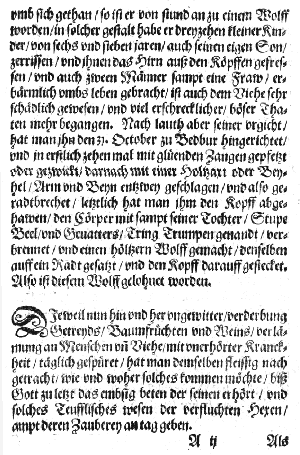 vmb sich gethan / so ist er von stund an zu einem Wolff
worden / in solcher gestalt habe er dreyzehen kleiner Kin-
der / von sechs vnd sieben jaren / auch seinen eigen Son /
zerrissen / vnd ihnen das Hirn auß den Köpffen gefres-
sen / vnd auch zween Männer sampt eine Fraw / er-
bärmlich vmbs leben gebracht / ist auch dem Viehe sehr
schädlich gewesen / vnd viel erschrecklicher / böser Tha-
ten mehr begangen. Nach lauth aber seiner vrgicht /
hat man jhn den 31. October zu Bedbur hingerichtet /
vnd in erstlich zehen mal mit glüenden Zangen gepfetzt
oder gezwickt / darnach mit einer Holtzaxt oder Bey-
hel / Arm vnd Beyn entzwey geschlagen / vnd also ge-
radtbrechet / letzlich hat man jhm den Kopff abge-
hawen / den Cörper mit sampt seiner Tochter / Stupe
Beel / vnd Geuatters / Tring Trumpen genandt / ver-
brennet / vnd einen höltzern Wolff gemacht / denselben
auff ein Radt gesatzt / vnd den Kopff darauff gestecket.
Also ist diesem Wolff gelohnet worden.
DJeweil nun hin vnd her vngewitter / verderbung
Getreyds / Baumfrüchten vnd Weins / verlä-
mung an Menschen vñ Viehe / mit vnerhörter Kranck-
heit / täglich gespüret / hat man demselben fleissig nach
getracht / wie vnd woher solches kommen möchte / biß
Gott zu letzt das embsig beten der seinen erhört / vnd
solches Teufflisches wesen der verfluchten Hexen /
sampt deren Zauberey an tag geben.
A ij Als